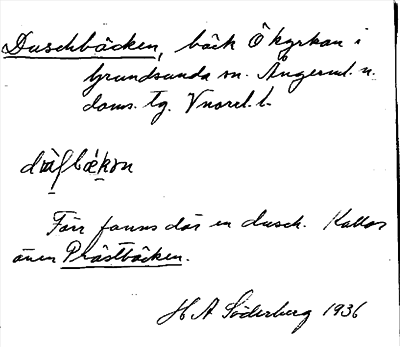 Duschbäcken, bäck Ö kyrkan i
Grundsunda sn. Ångerml. n.
doms. tg. Vnorrl. l.
Förr fanns där en dusch. Kallas
även Prästbäcken.
H A Söderberg 1936